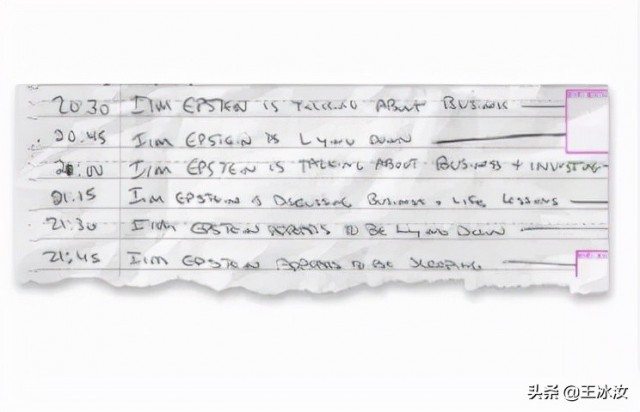 20:30 I/M EPSTEIN IS TALKING ABOUT BUSINESS
20:45 I/M EPSTEIN IS LYING DOWN
21:00 I/M EPSTEIN IS TALKING ABOUT BUSINESS + INVESTING
21:15 I/M EPSTEIN IS DISCUSSING BUSINESS + LIFE LESSONS
21:30 I/M EPSTEIN APPEARS TO BE LYING DOWN
21:45 I/M EPSTEIN APPEARS TO BE SLEEPING
头条 @王冰汝